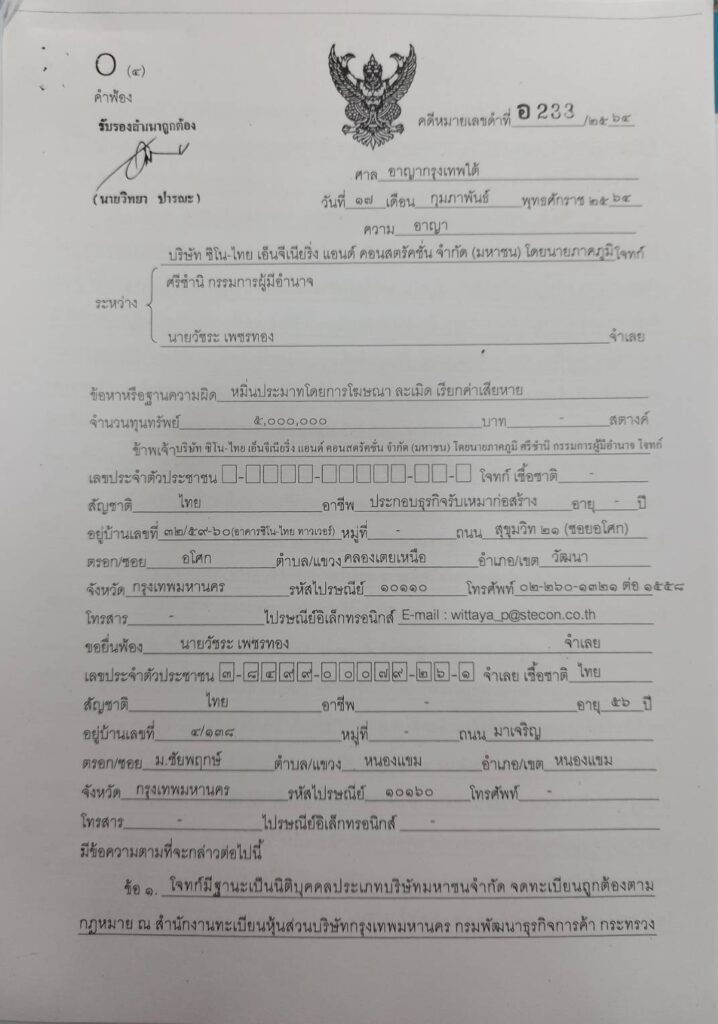 ๐ (๔)
คำฟ้อง
รับรองสำเนาถูกต้อง
(นายวิทยา ปารณะ)
คดีหมายเลขดำที่ อ 233 /๒๕๖๔
ศาล อาญากรุงเทพใต้
วันที่ ๑๗ เดือน กุมภาพันธ์ พุทธศักราช ๒๕๖๔
ความ อาญา
บริษัท ซิโน-ไทย เอ็นจีเนียริ่ง แอนด์ คอนสตรัคชั่น จำกัด (มหาชน) โดยนายภาคภูมิ โจทก์
ศรีชำนิ กรรมการผู้มีอำนาจ
ระหว่าง
นายวัชระ เพชรทอง จำเลย
ข้อหาหรือฐานความผิด หมิ่นประมาทโดยการโฆษณา ละเมิด เรียกค่าเสียหาย
จำนวนทุนทรัพย์ ๕,๐๐๐,๐๐๐ บาท - สตางค์
ข้าพเจ้า บริษัท ซิโน-ไทย เอ็นจีเนียริ่ง แอนด์ คอนสตรัคชั่น จำกัด (มหาชน) โดยนายภาคภูมิ ศรีชำนิ กรรมการผู้มีอำนาจ โจทก์
เลขประจำตัวประชาชน - - - - โจทก์ เชื้อชาติ -
สัญชาติ ไทย อาชีพ ประกอบธุรกิจรับเหมาก่อสร้าง อายุ - ปี
อยู่บ้านเลขที่ ๓๒/๕๙-๖๐(อาคารซิโน-ไทย ทาวเวอร์) หมู่ที่ - ถนน สุขุมวิท ๒๑ (ซอยอโศก)
ตรอก/ซอย อโศก ตำบล/แขวง คลองเตยเหนือ อำเภอ/เขต วัฒนา
จังหวัด กรุงเทพมหานคร รหัสไปรษณีย์ ๑๐๑๑๐ โทรศัพท์ ๐๒-๒๖๐-๑๓๒๑ ต่อ ๑๕๕๘
โทรสาร - ไปรษณีย์อิเล็กทรอนิกส์ E-mail : wittaya_p@stecon.co.th
ขอยื่นฟ้อง นายวัชระ เพชรทอง จำเลย
เลขประจำตัวประชาชน ๓-๘๔๙๙-๐๐๐๗๙-๒๖-๑ จำเลย เชื้อชาติ ไทย
สัญชาติ ไทย อาชีพ - อายุ ๕๖ ปี
อยู่บ้านเลขที่ ๔/๑๓๘ หมู่ที่ - ถนน มาเจริญ
ตรอก/ซอย ม.ชัยพฤกษ์ ตำบล/แขวง หนองแขม อำเภอ/เขต หนองแขม
จังหวัด กรุงเทพมหานคร รหัสไปรษณีย์ ๑๐๑๖๐ โทรศัพท์ -
โทรสาร - ไปรษณีย์อิเล็กทรอนิกส์ -
มีข้อความตามที่จะกล่าวต่อไปนี้
ข้อ ๑. โจทก์มีฐานะเป็นนิติบุคคลประเภทบริษัทมหาชนจำกัด จดทะเบียนถูกต้องตาม
กฎหมาย ณ สำนักงานทะเบียนหุ้นส่วนบริษัทกรุงเทพมหานคร กรมพัฒนาธุรกิจการค้า กระทรวง